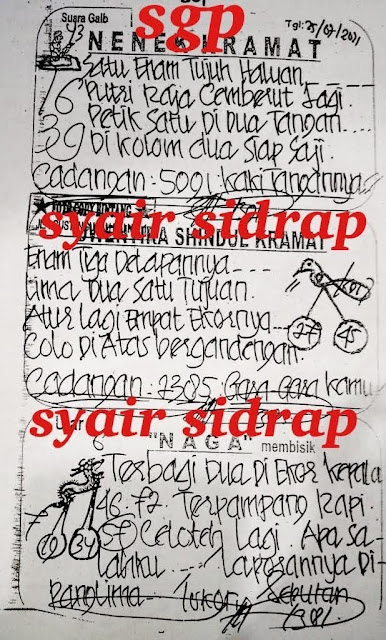 Suara Gaib
sgp
Tgl: 25/07/2021
43
NENEK KRAMAT
Satu Enam Tujuh Haluan
Putri Raja Cemberut Lagi.
Petik Satu Di Dua Tangan....
Di Kolom dua Siap Saji.
Cadangan: 5091 kaki Tangannya
syair sidrap
SHINDUL KRAMAT
Enam Tiga Delapannya----
Lima Dua Satu Tujuan.
Atur Lagi Empat Ekornya---
Colo Di Atas bergandengan.
27
45
Cadangan: 7385 Gara Gara kamu
syair sidrap
6
"NAGA" membisik
Terbagi Dua Di Ekor Kepala
46.72 Terpampang Rapi.
57 Celoteh Lagi. Apa Sa-
lahku --- Laporannya Di-
34